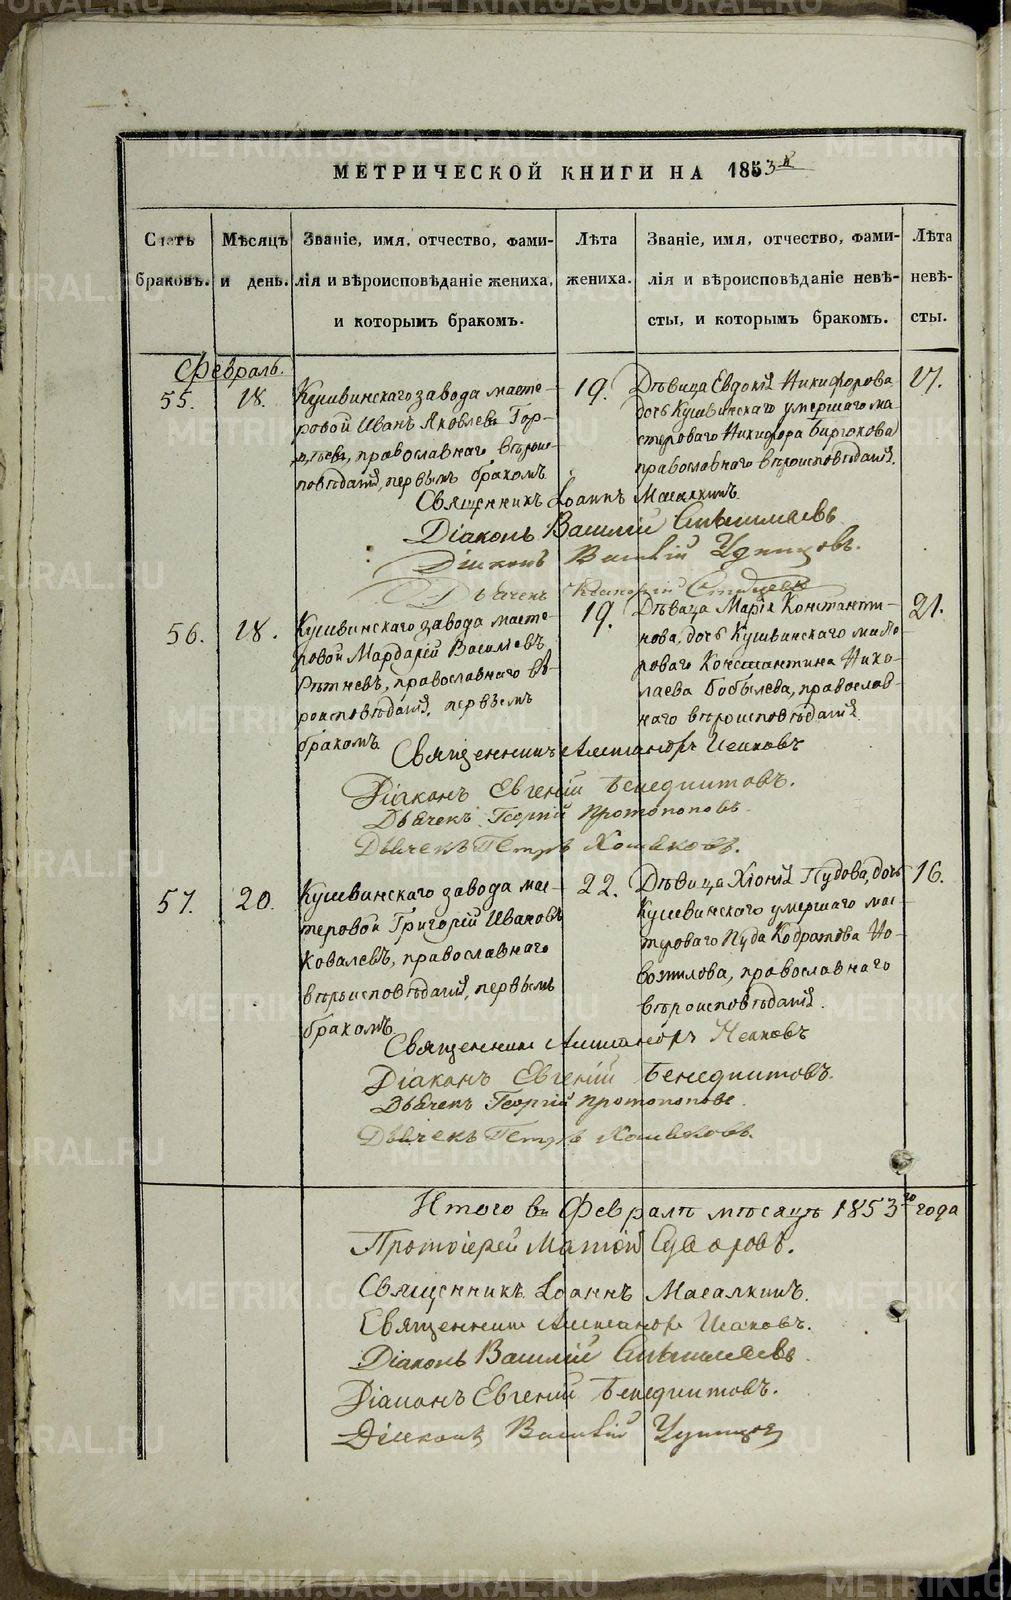 МЕТРИЧЕСКОЙ КНИГИ НА 1853й
Счетъ браковъ.
Мѣсяцъ и день.
Званіе, имя, отчество, фами-
лія и вѣроисповѣданіе жениха,
и которымъ бракомъ.
Лѣта жениха.
Званіе, имя, отчество, фами-
лія и вѣроисповѣданіе невѣ-
сты, и которымъ бракомъ.
Лѣта невѣ-
сты.
Февраль.
55.
18.
Кушвинскаго завода масте-
ровой Иванъ Яковлевъ Гор-
православнаго вѣроис-
повѣданія, первымъ бракомъ
19.
Дѣвица Евдокія Никифорова
дочь Кушвинскаго умершаго ма-
стероваго Никифора Бирюкова
православнаго вѣроисповѣданія.
17.
Священникъ Іоаннъ Масалкинъ
Діаконъ Василій
Діаконъ Василій
Дьячекъ
56.
18.
Кушвинскаго завода масте-
ровой Мардарій Васильевъ
православнаго вѣ-
роисповѣданія, первымъ
бракомъ
19.
Дѣвица Марія Константи-
нова, дочь Кушвинскаго масте-
роваго Константина Нико-
лаева Бобылева, православ-
наго вѣроисповѣданія.
21.
Священникъ Александръ Исаковъ
Діаконъ Евгеній Бенедиктовъ.
Дьячекъ Георгій Протопоповъ
Дьячекъ Петръ
57.
20.
Кушвинскаго завода мас-
теровой Григорій Ивановъ
Ковалевъ, православнаго
вѣроисповѣданія, первымъ
бракомъ
22.
Дѣвица Хіонія Пудова, дочь
Кушвинскаго умершаго мас-
тероваго Пуда Кодратова Но-
вожилова, православнаго
вѣроисповѣданія.
16.
Священникъ Александръ Исаковъ
Діаконъ Евгеній Бенедиктовъ.
Дьячекъ Георгій Протопоповъ
Дьячекъ Петръ
Итого въ Февралѣ мѣсяцѣ 1853го года
Протоіерей Суворовъ.
Священникъ Іоаннъ Масалкинъ.
Священникъ Александръ Исаковъ.
Діаконъ Василій
Діаконъ Евгеній Бенедиктовъ.
Діаконъ Василій
METRIKI.GASO-URAL.RU